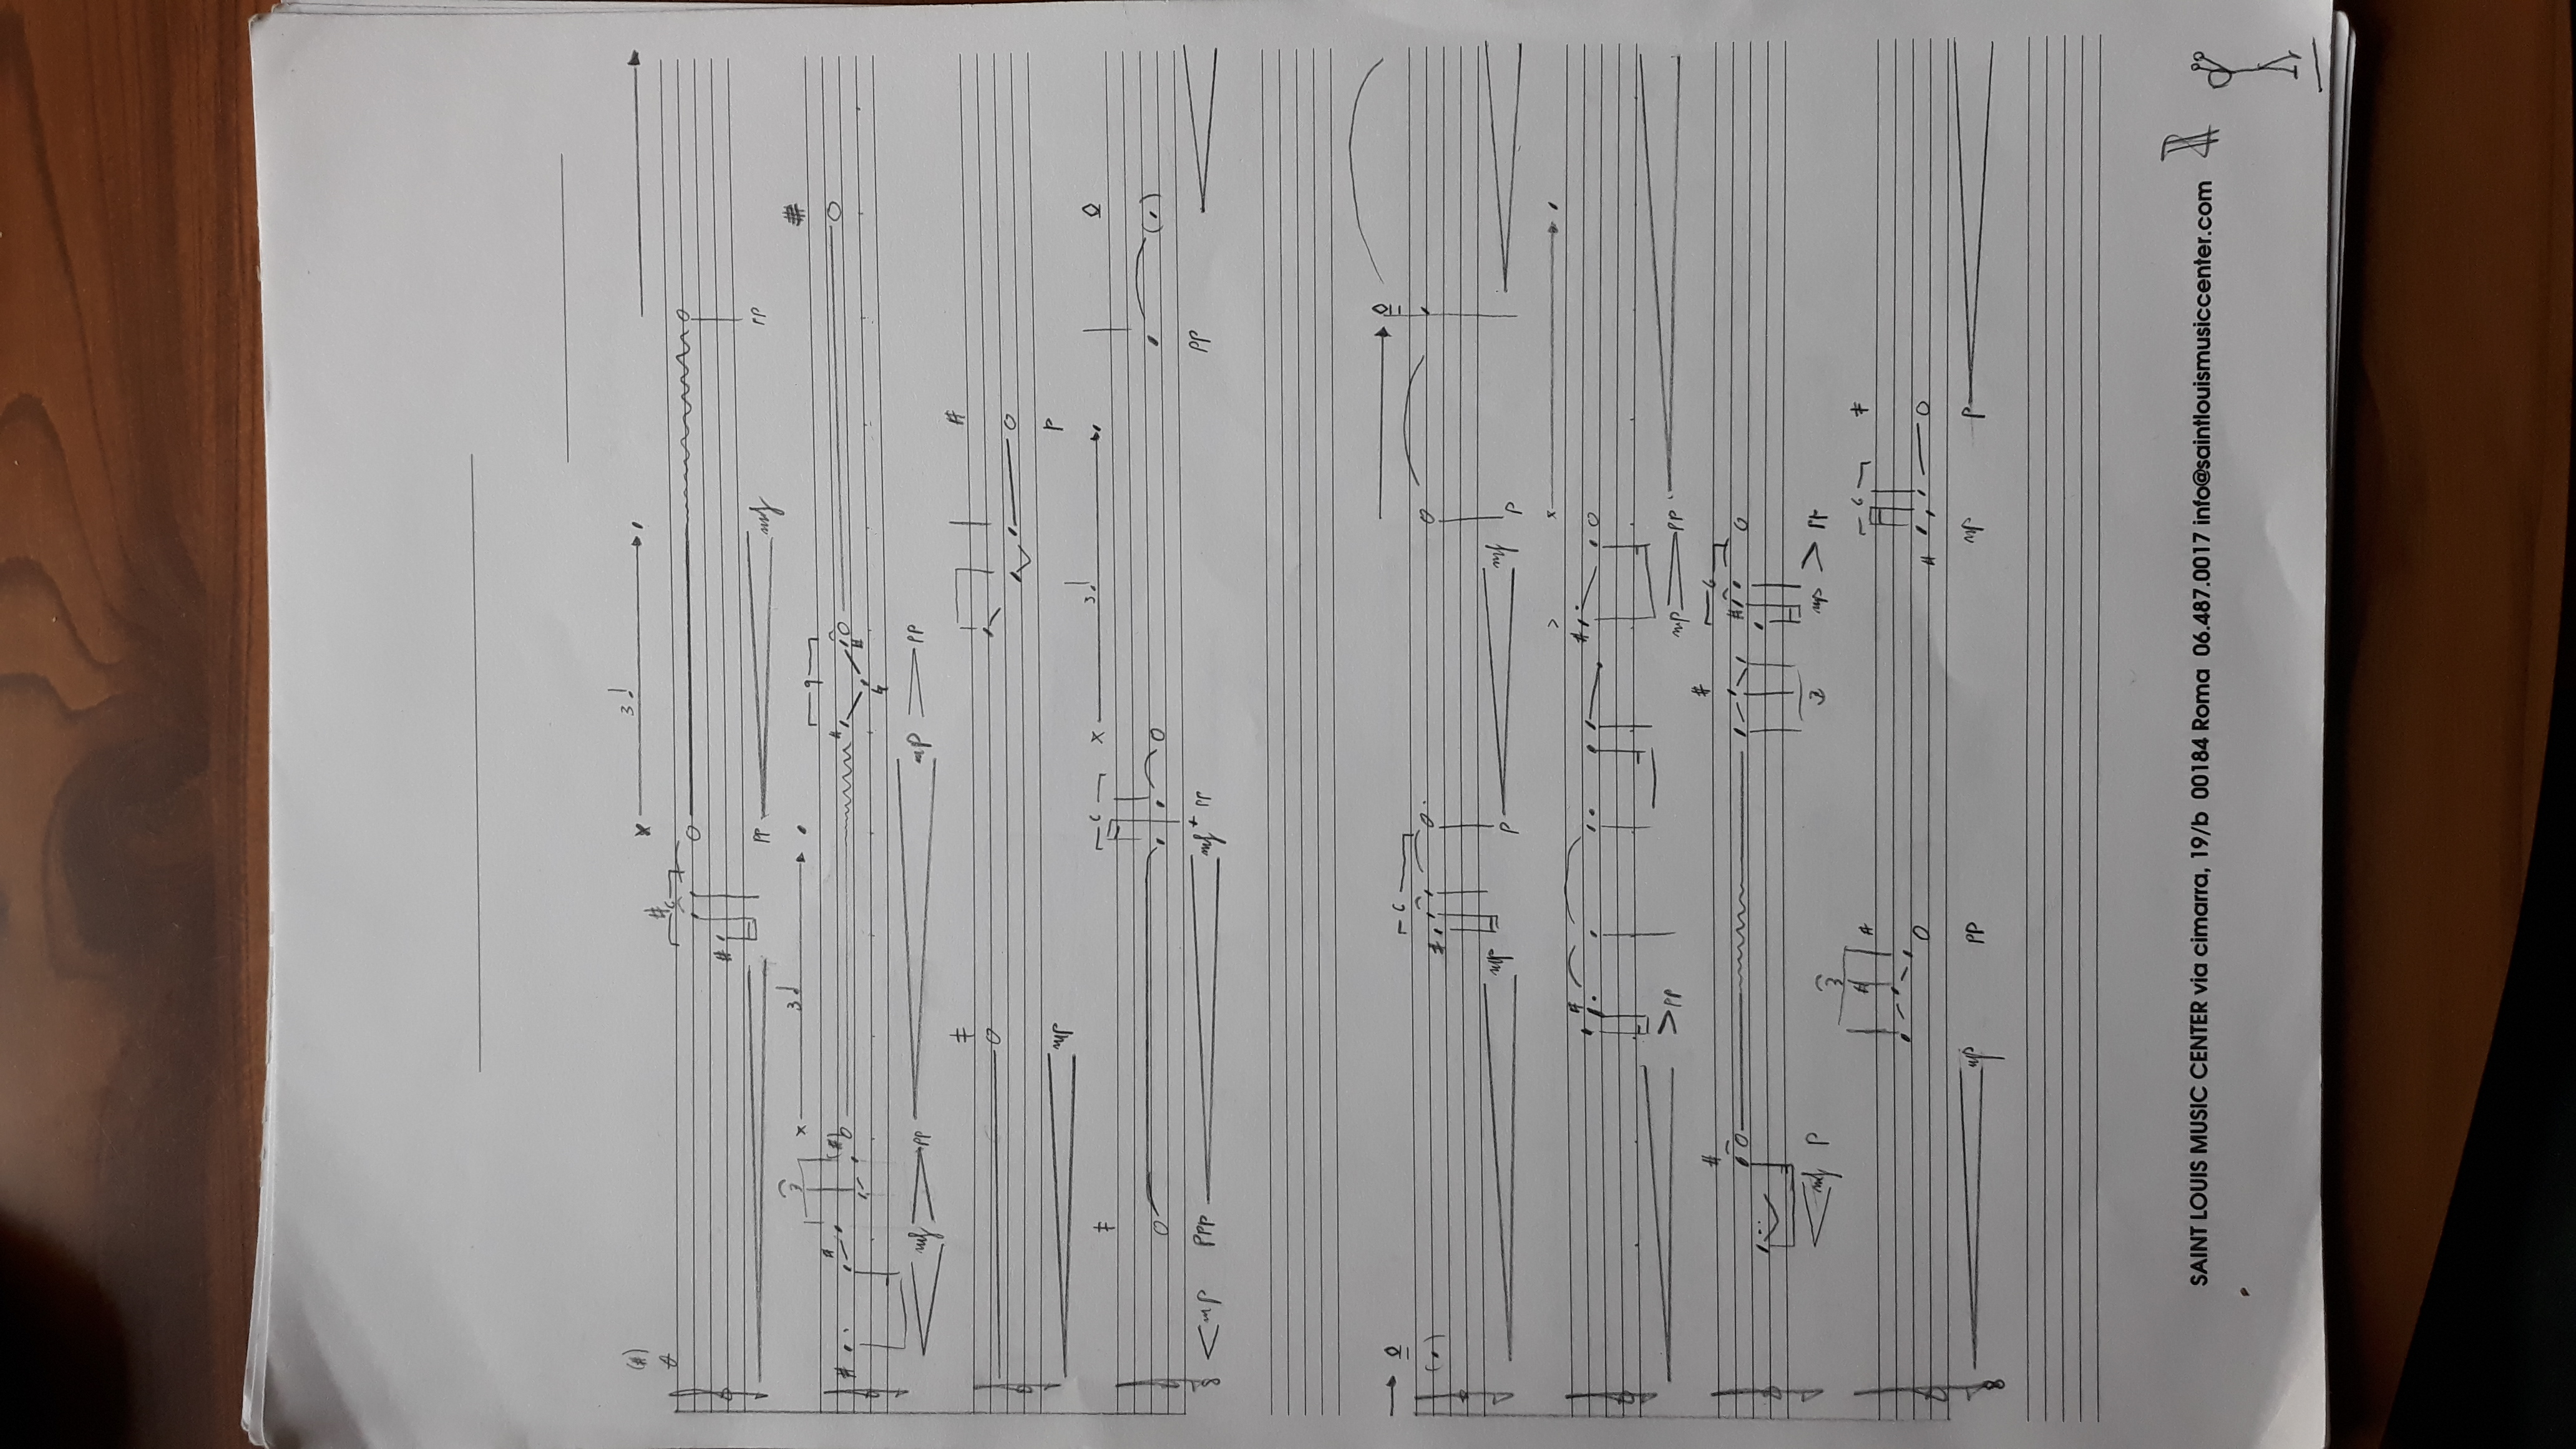 (#)
#
6
x 3
#
pp mf pp
3 x 3
#
# # (#) # 9 #
mf pp mp pp
‡ #
mp p
‡ 6 x 3
mp ppp mf + pp pp
6
‡
mp p mf p
> x
# #
> pp mp pp
# # 6
#
mf p 3 mp > pp
3
# # 6 ‡
#
mp pp mp p
SAINT LOUIS MUSIC CENTER via cimarra, 19/b 00184 Roma 06.487.0017 info@saintlouismusiccenter.com